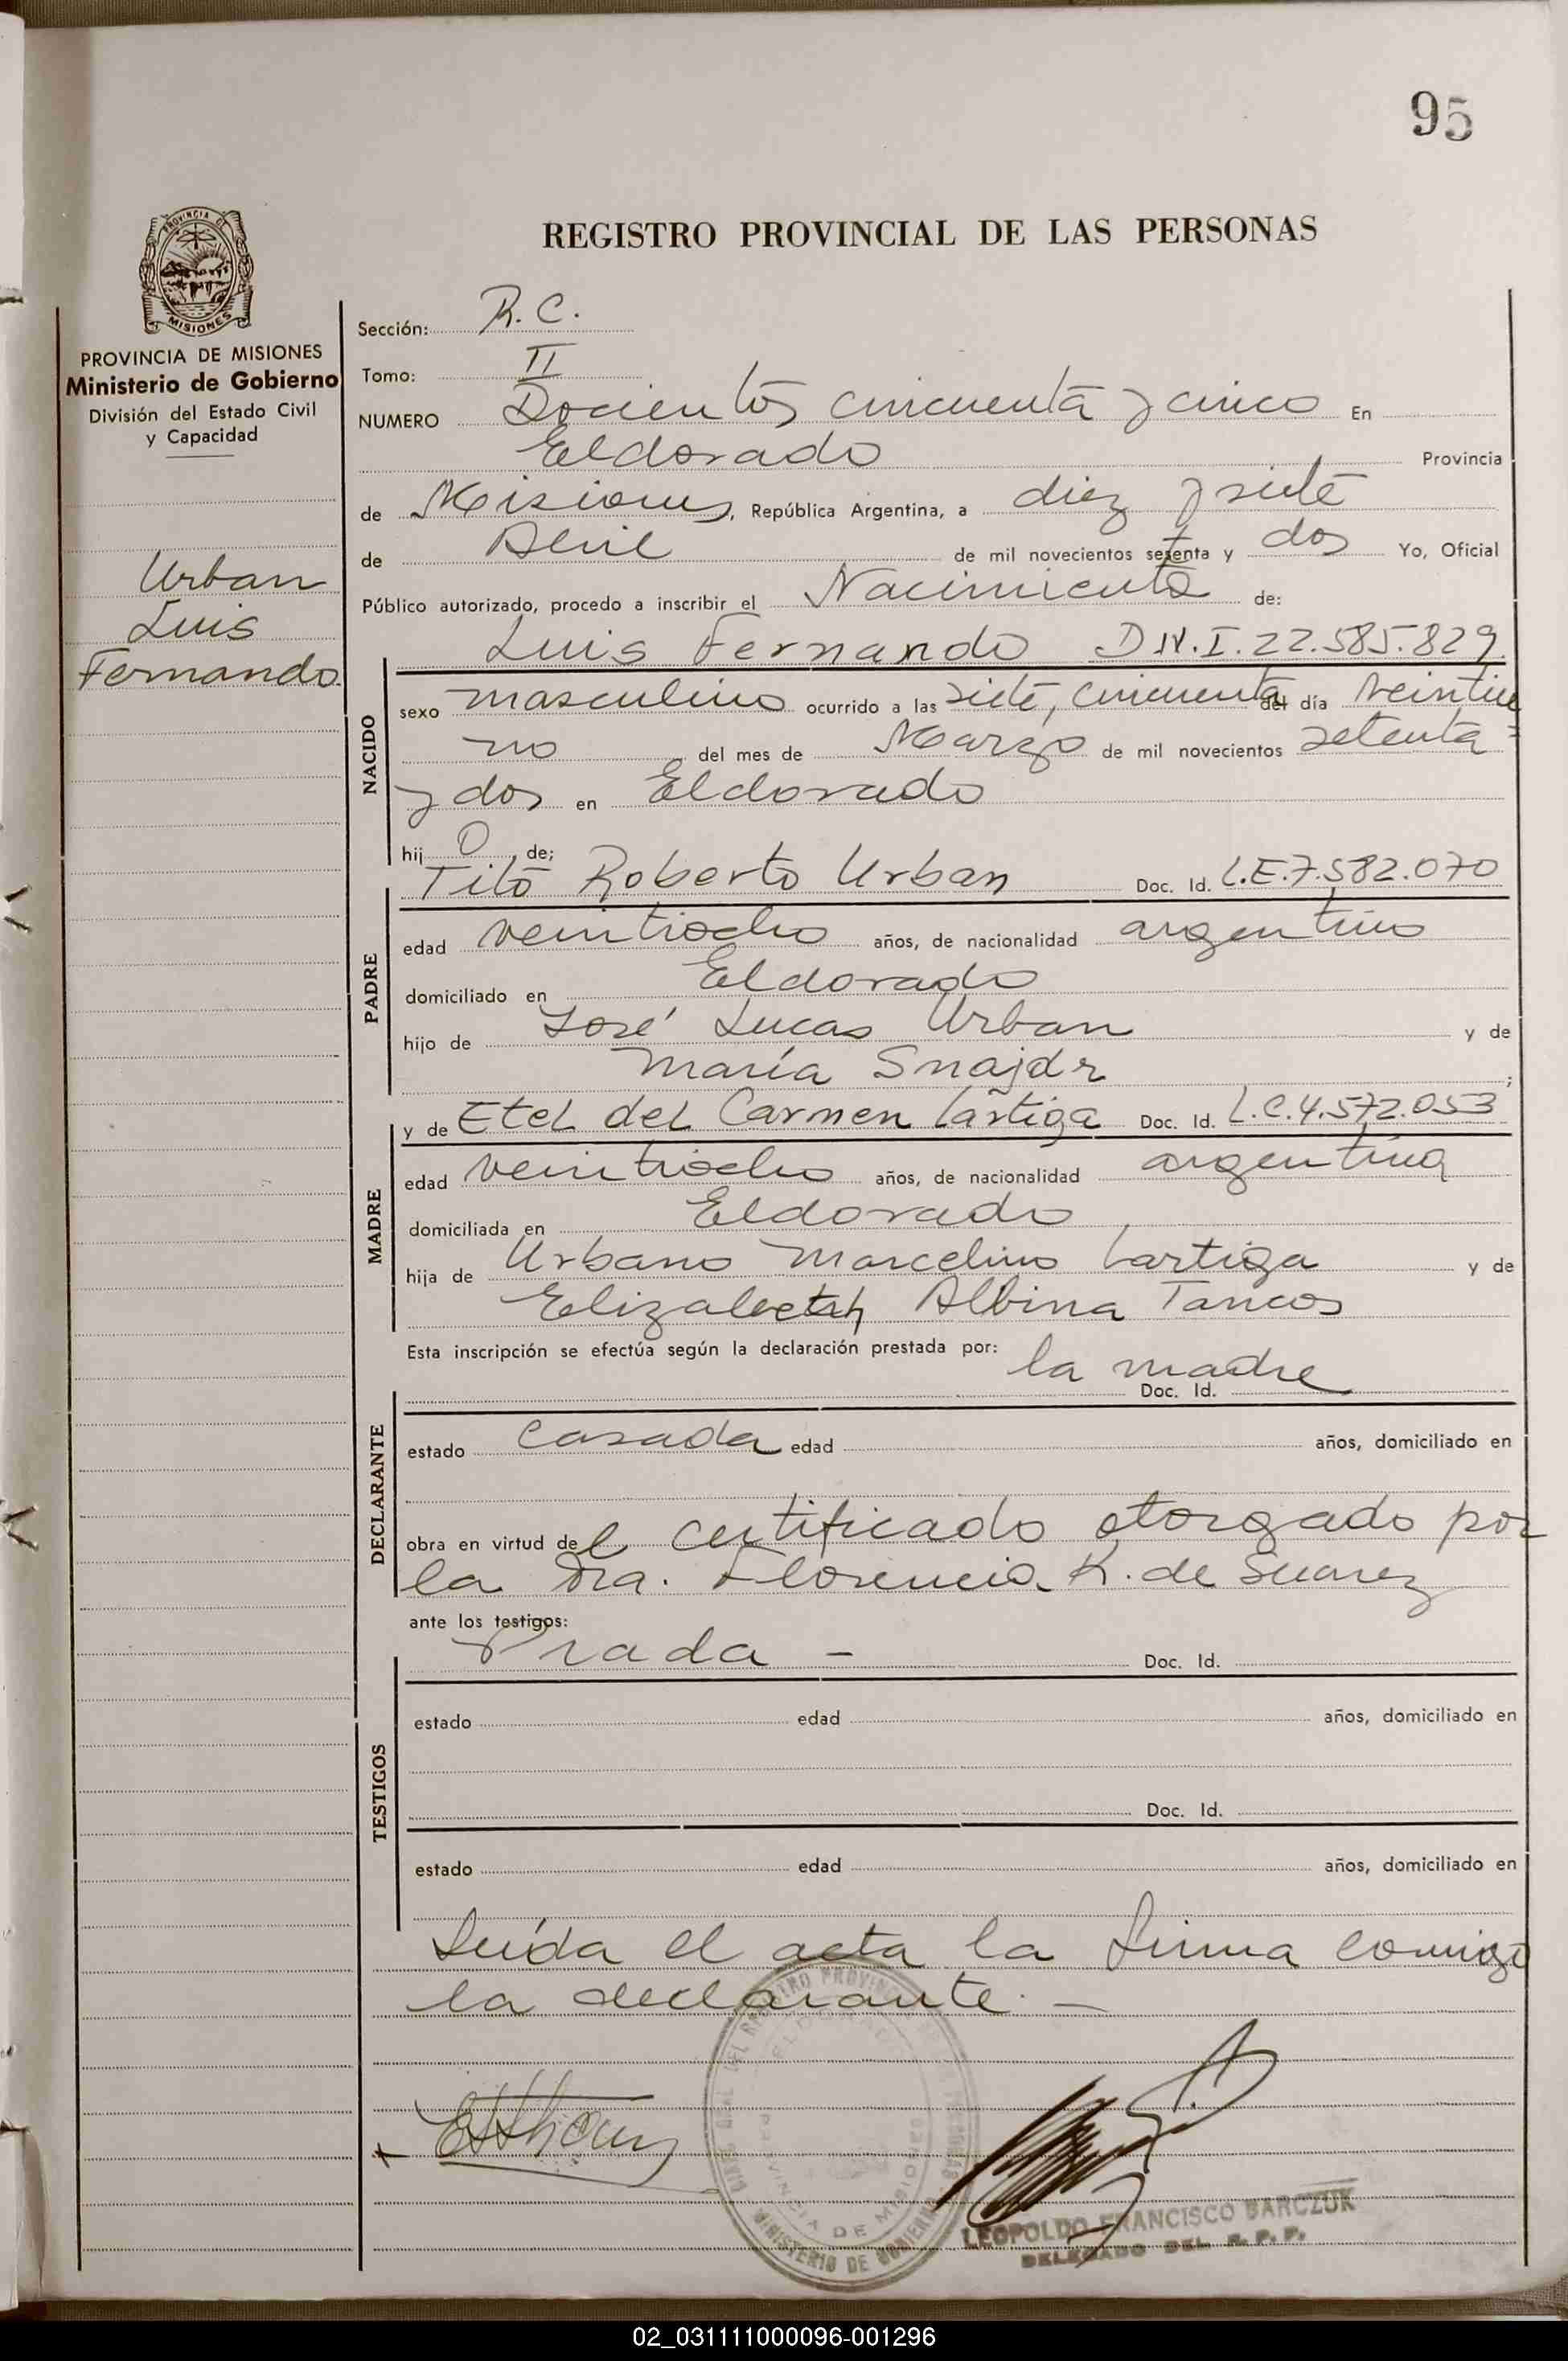 95
REGISTRO PROVINCIAL DE LAS PERSONAS
PROVINCIA DE
MISIONES
PROVINCIA DE MISIONES
Ministerio de Gobierno
División del Estado Civil
y Capacidad
Urban
Luis
Fernando
Sección: R. C.
Tomo: II
NUMERO Docientos cincuenta y cinco En
Eldorado Provincia
de Misiones, República Argentina, a diez y siete
de Abril de mil novecientos setenta y dos Yo, Oficial
Público autorizado, procedo a inscribir el Nacimiento de:
Luis Fernando D.N.I. 22.585.829
NACIDO
sexo masculino ocurrido a las siete, cincuenta del día veintiu
no del mes de Marzo de mil novecientos setenta =
y dos en Eldorado
hij o de;
Tito Roberto Urban Doc. Id. L.E.7.582.070
PADRE
edad veintiocho años, de nacionalidad argentino
domiciliado en Eldorado
hijo de José Lucas Urban y de
María Snajdr ;
y de Etel del Carmen Lartiga Doc. Id. L.C.4.572.053
MADRE
edad veintiocho años, de nacionalidad argentina
domiciliada en Eldorado
hija de Urbano Marcelino Lartiga y de
Elizabetah Albina Tancos
Esta inscripción se efectúa según la declaración prestada por: la madre
Doc. Id.
DECLARANTE
estado casada edad años, domiciliado en
obra en virtud del certificado otorgado por
la Dra. Florencia K. de Suarez
ante los testigos:
Prada - Doc. Id.
TESTIGOS
estado edad años, domiciliado en
Doc. Id.
estado edad años, domiciliado en
Leída el acta la firma comigo
la declarante. —
DEL REGISTRO PROVINCIAL
PROVINCIA DE MISIONES
MINISTERIO DE GOBIERNO
LEOPOLDO FRANCISCO BARCZUK
DELEGADO DEL R. P. P.
02_031111000096-001296